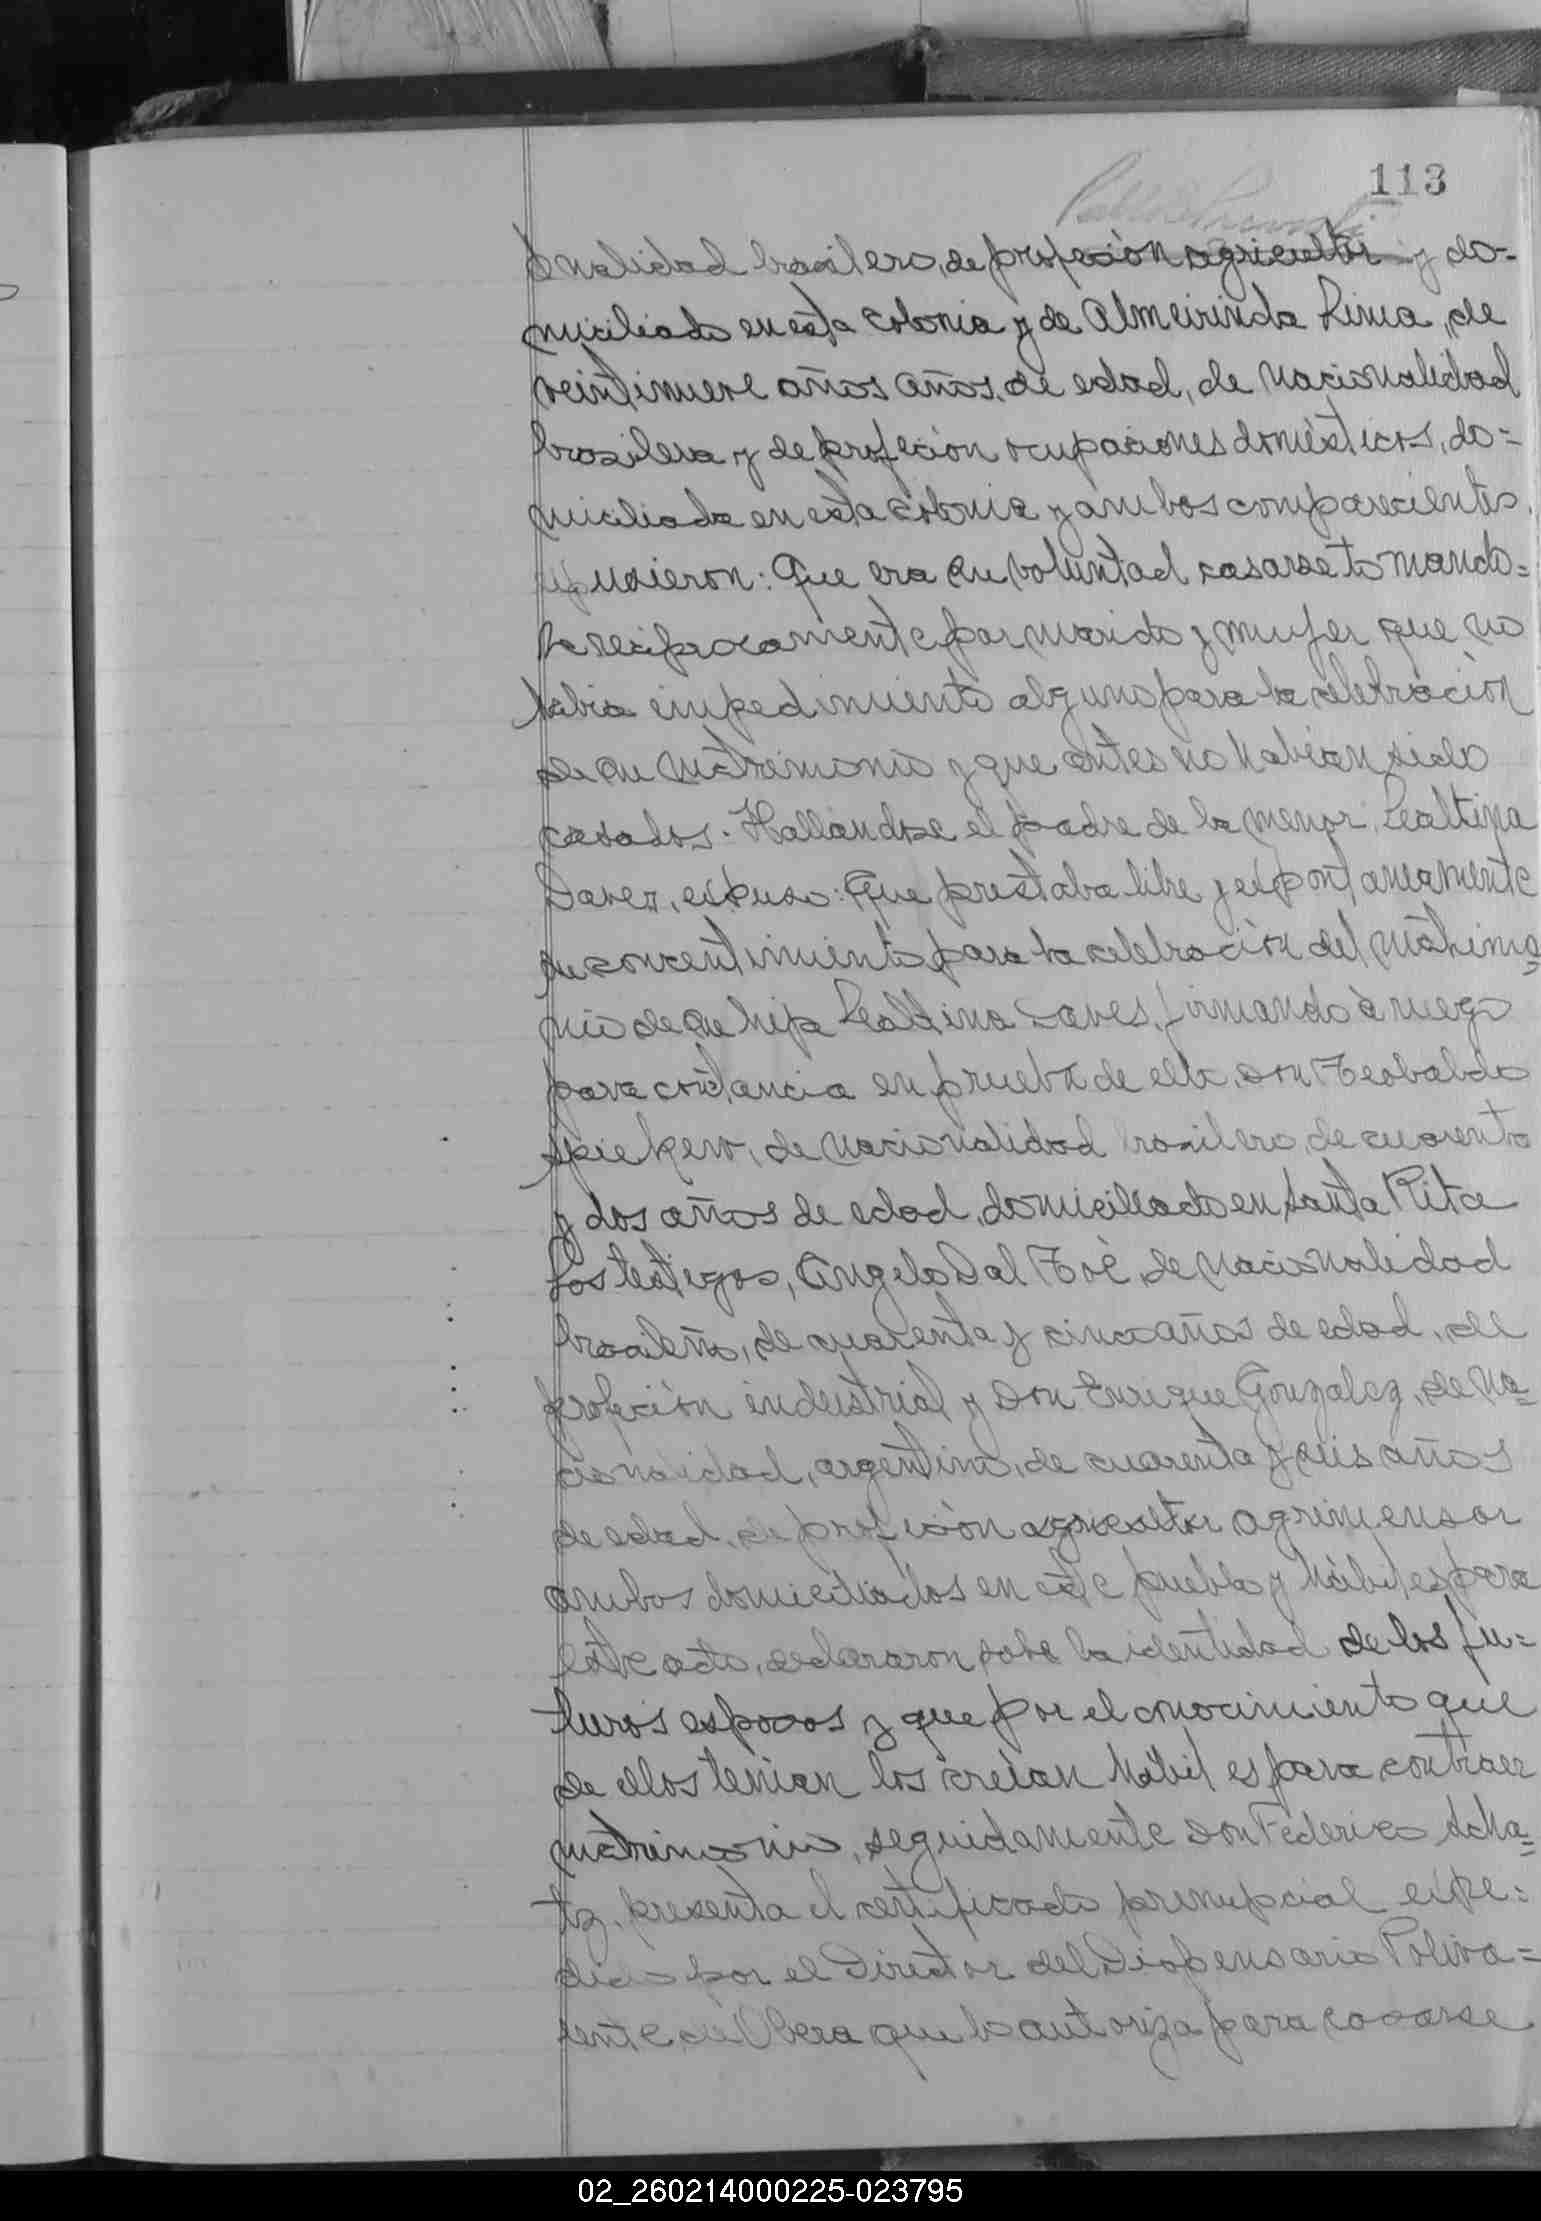 113
onalidad brasilero, de profeción agricultor y do=
miciliado en esta colonia y de Almeirinda Lima, de
veintinueve años años, de edad, de nacionalidad
brasilera y de profeción ocupaciones domésticos, do=
miciliada en esta colonia y ambos comparecientes
espusieron: Que era su voluntad casarse tomando=
se reciprocamente por marido y mujer que no
habia impedimiento alguno para la celebración
de su matrimonio y que antes no habian sido
casados. Hallandose el padre de la menor, Lealtina
expuso: Que prestaba libre y espontaneamente
su consentimiento para la celebración del matrimo=
nio de su hija Lealtina firmando à ruego
para constancia en prueba de ello, Don Teobaldo
de nacionalidad brasilero, de cuarenta
y dos años de edad, domiciliado en Santa Rita
Los testigos, Angelo Dal de nacionalidad
brasileño, de cuarenta y cinco años de edad, de
profeción industrial y Don Enrique Gonzalez, de na=
cionalidad, argentino, de cuarenta y seis años
de edad, de profeción agricultor agrimensor
ambos domiciliados en este pueblo y hábiles para
este acto, declararon sobre la identidad de los fu=
turos esposos y que por el conocimiento que
de ellos tenian los creían hábiles para contraer
matrimonio, seguidamente Don Federico Scha=
tz, presenta el certificado prenupcial expe=
dido por el Director del Dispensario Poliva=
lente de Obera que lo autoriza para casarse
02_260214000225-023795